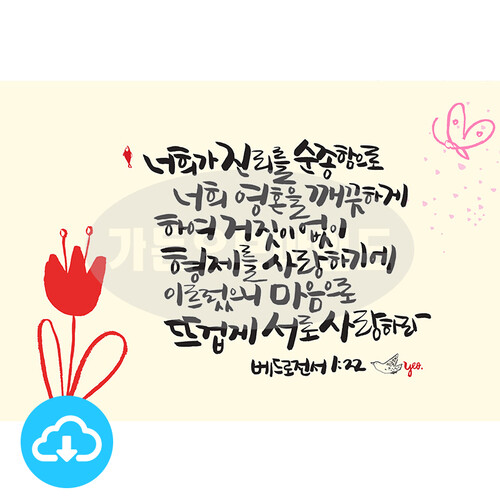 너희가 진리를 순종함으로
너희 영혼을 깨끗하게
하여 거짓이 없이
형제를 사랑하기에
이르렀으니 마음으로
뜨겁게 서로 사랑하라
베드로전서 1:22 yeo.